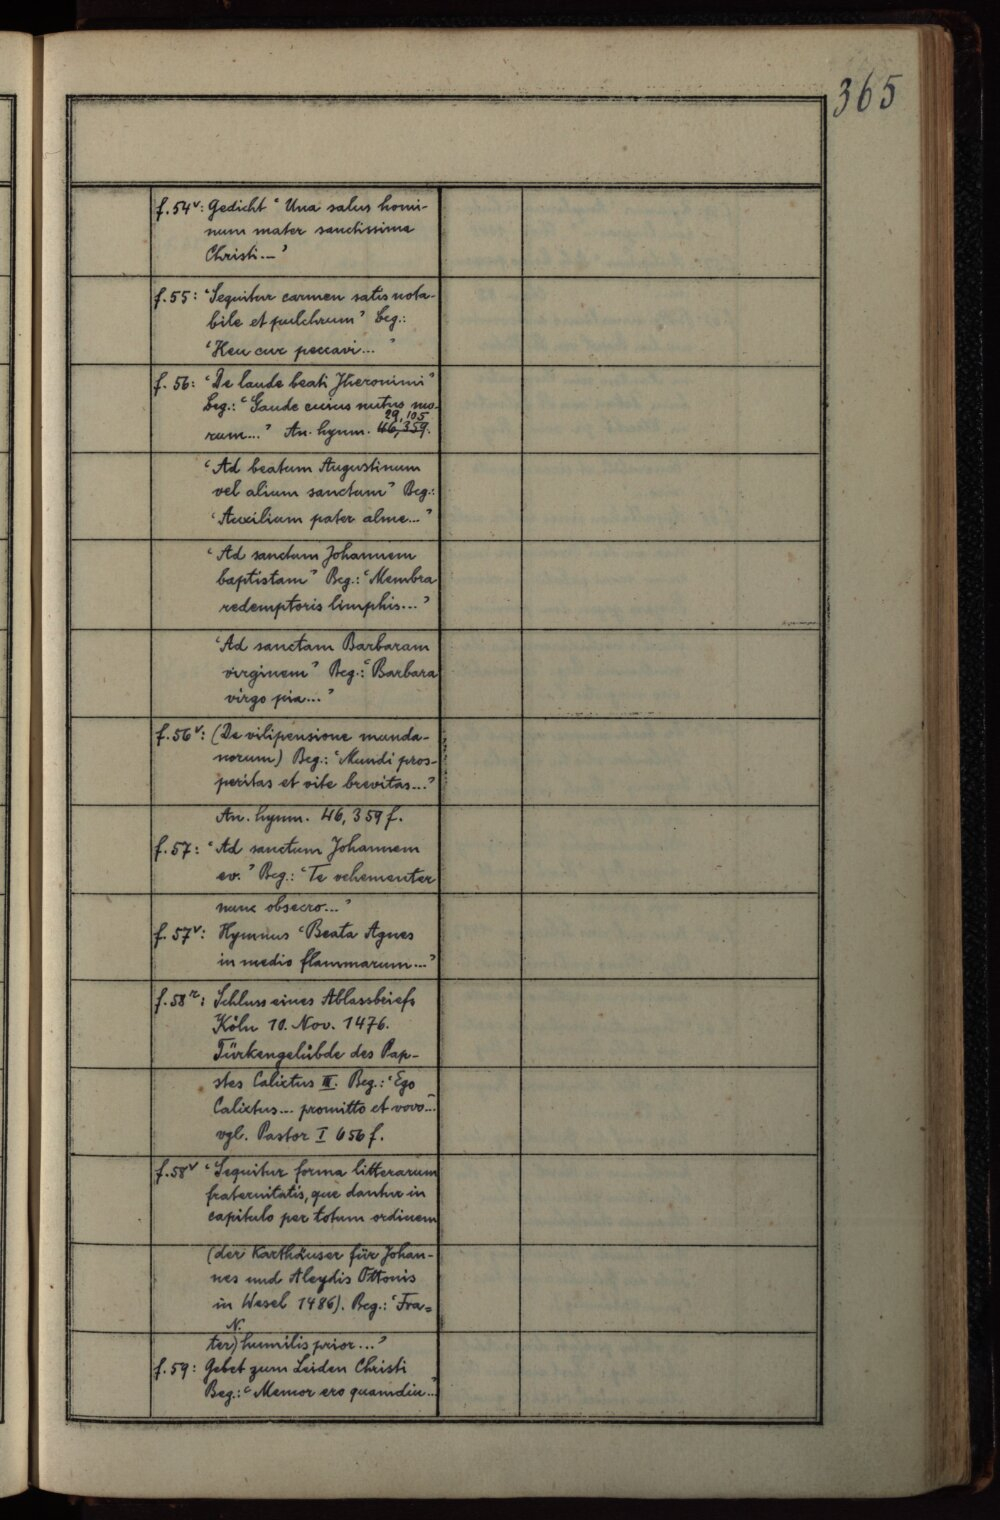 365
f. 54v: Gedicht "Una salus homi-
num mater sanctissima
Christi..."
f. 55: "Sequitur carmen satis nota-
bile et pulchrum" Beg.:
"Heu cur peccavi..."
f. 56: "De laude beati Jheronimi"
Beg.: "Gaude cuius nutus mo-
29, 105
rum..." An. hymn. 46, 359.
"Ad beatum Augustinum
vel alium sanctum" Beg.:
"Auxilium pater alme..."
"Ad sanctum Johannem
baptistam" Beg.: "Membra
redemptoris limphis..."
"Ad sanctam Barbaram
virginem" Beg.: "Barbara
virgo pia..."
f. 56v: (De vilipensione munda-
norum) Beg.: "Mundi pros-
peritas et vite brevitas..."
An. hymn. 46, 359 f.
f. 57: "Ad sanctum Johannem
ev." Beg.: "Te vehementer
nunc obsecro..."
f. 57v: Hymnus "Beata Agnes
in medio flammarum..."
f. 58r: Schluss eines Ablassbriefs
Köln 10. Nov. 1476.
Türkengelübde des Pap-
stes Calixtus III. Beg.: "Ego
Calixtus... promitto et voveo..."
vgl. Pastor I 656 f.
f. 58v "Sequitur forma litterarum
fraternitatis, que dantur in
capitulo per totum ordinem
(der Karthäuser für Johan-
nes und Aleydis Ottonis
in Wesel 1486). Beg.: "Fra=
N.
ter) humilis prior..."
f. 59: Gebet zum Leiden Christi
Beg.: "Memor ero quamdiu..."